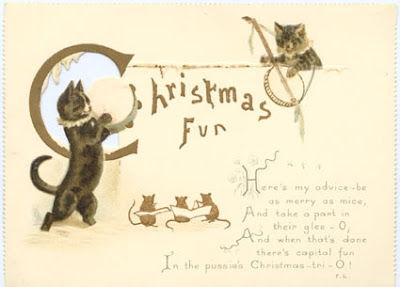 Christmas
Fun
Here's my advice-be
as merry as mice,
And take a part in
their glee-O,
And when that's done
there's capital fun
In the pussie's Christmas-tri-O!
r.c.